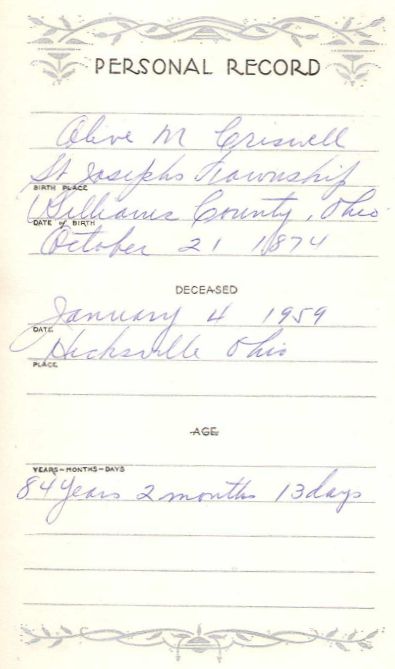 PERSONAL RECORD
Olive M Criswell
St Josephs Township
BIRTH PLACE
Williams County, Ohio
DATE of BIRTH
October 21 1874
DECEASED
January 4 1959
DATE
Hicksville Ohio
PLACE
AGE
YEARS-MONTHS-DAYS
84 years 2 months 13 days